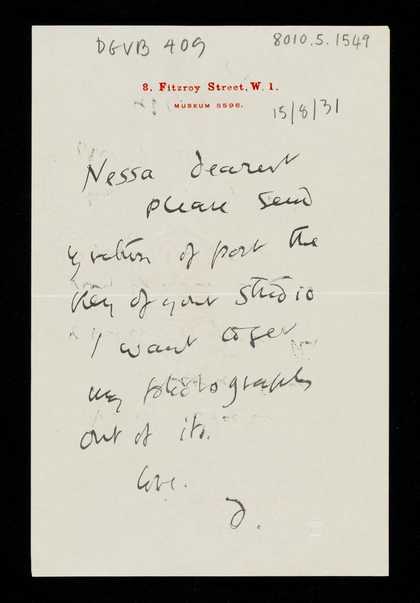 DGVB 409
8010.5.1549
8, Fitzroy Street, W. 1.
MUSEUM 8596.
15/8/31
Nessa dearest
please send
by return of post the
key of your studio
I want to get
my photographs
out of it.
love.
D.